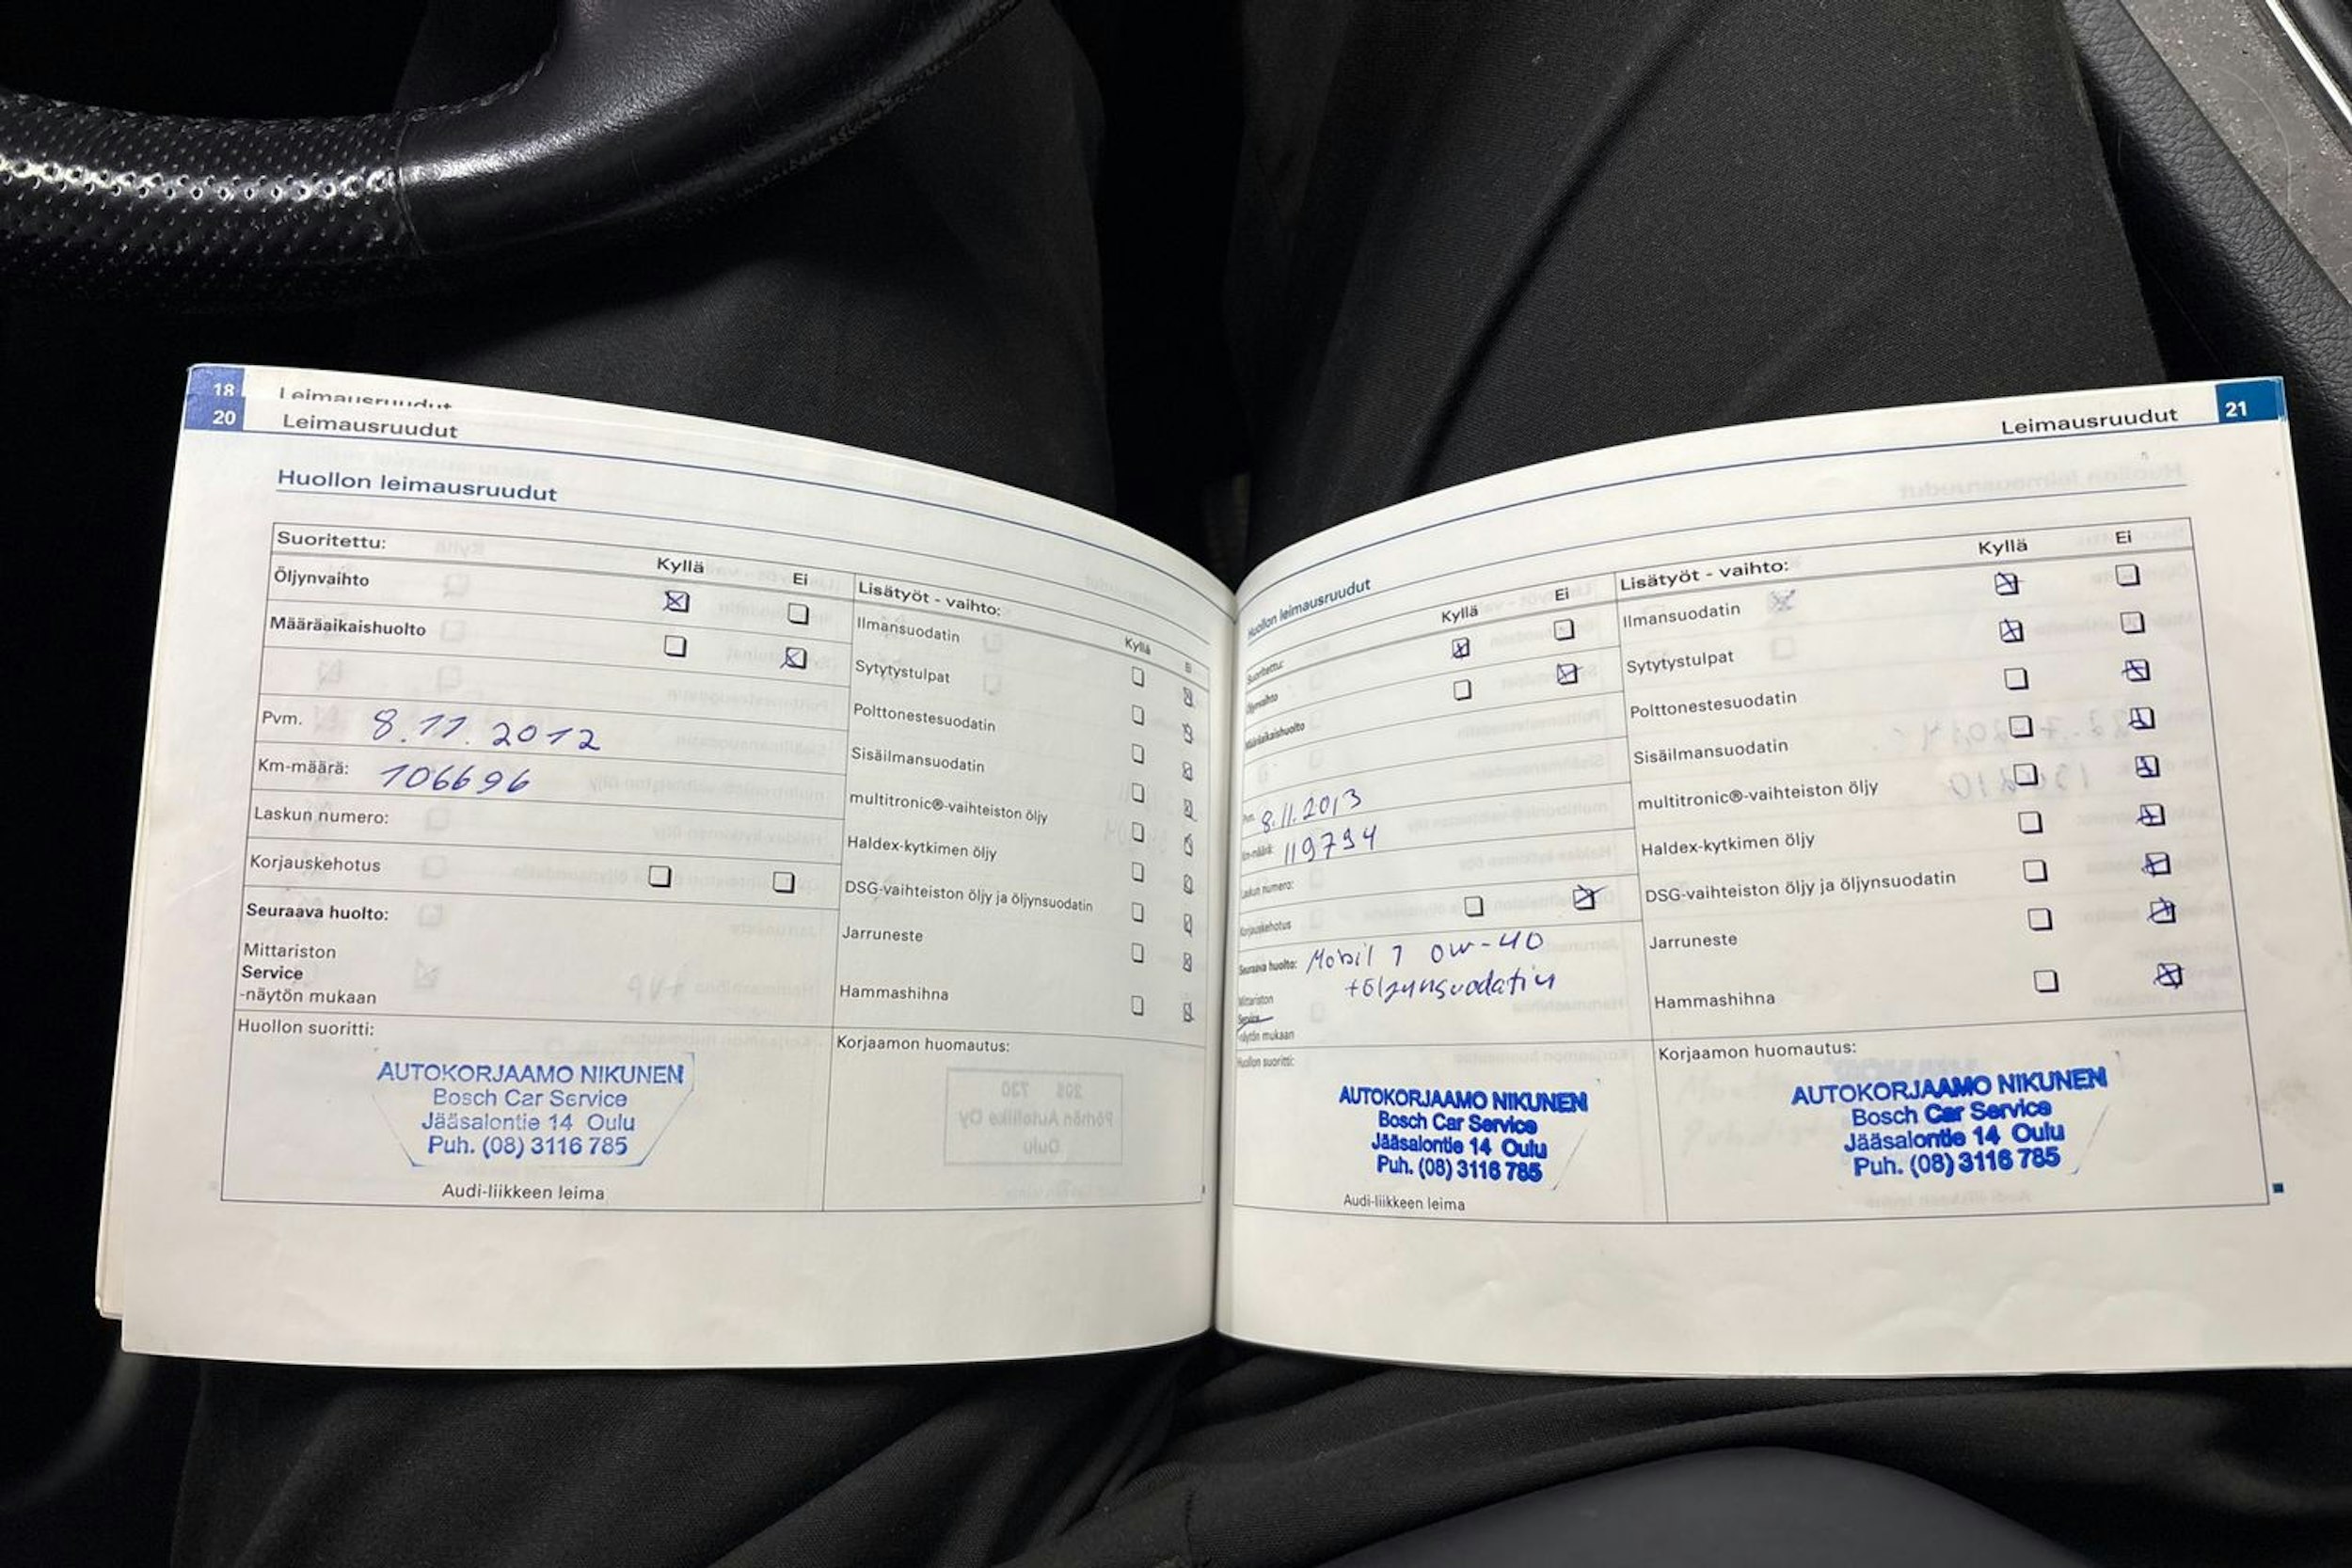 18 Leimausruudut
20 Leimausruudut
Huollon leimausruudut
Suoritettu:
Kyllä Ei
Öljynvaihto
Määräaikaishuolto
Pvm. 8.11.2012
Km-määrä: 106696
Laskun numero:
Korjauskehotus
Seuraava huolto:
Mittariston
Service
-näytön mukaan
Huollon suoritti:
AUTOKORJAAMO NIKUNEN
Bosch Car Service
Jääsalontie 14 Oulu
Puh. (08) 3116 785
Audi-liikkeen leima
Lisätyöt - vaihto:
Kyllä Ei
Ilmansuodatin
Sytytystulpat
Polttonestesuodatin
Sisäilmansuodatin
multitronic®-vaihteiston öljy
Haldex-kytkimen öljy
DSG-vaihteiston öljy ja öljynsuodatin
Jarruneste
Hammashihna
Korjaamon huomautus:
Leimausruudut 21
Huollon leimausruudut
Suoritettu:
Kyllä Ei
Öljynvaihto
Määräaikaishuolto
Pvm. 8.11.2013
Km-määrä: 119794
Laskun numero:
Korjauskehotus
Seuraava huolto: Mobil 1 0W-40
+öljynsuodatin
Mittariston
Service
-näytön mukaan
Huollon suoritti:
AUTOKORJAAMO NIKUNEN
Bosch Car Service
Jääsalontie 14 Oulu
Puh. (08) 3116 785
Audi-liikkeen leima
Lisätyöt - vaihto:
Kyllä Ei
Ilmansuodatin
Sytytystulpat
Polttonestesuodatin
Sisäilmansuodatin
multitronic®-vaihteiston öljy
Haldex-kytkimen öljy
DSG-vaihteiston öljy ja öljynsuodatin
Jarruneste
Hammashihna
Korjaamon huomautus:
AUTOKORJAAMO NIKUNEN
Bosch Car Service
Jääsalontie 14 Oulu
Puh. (08) 3116 785